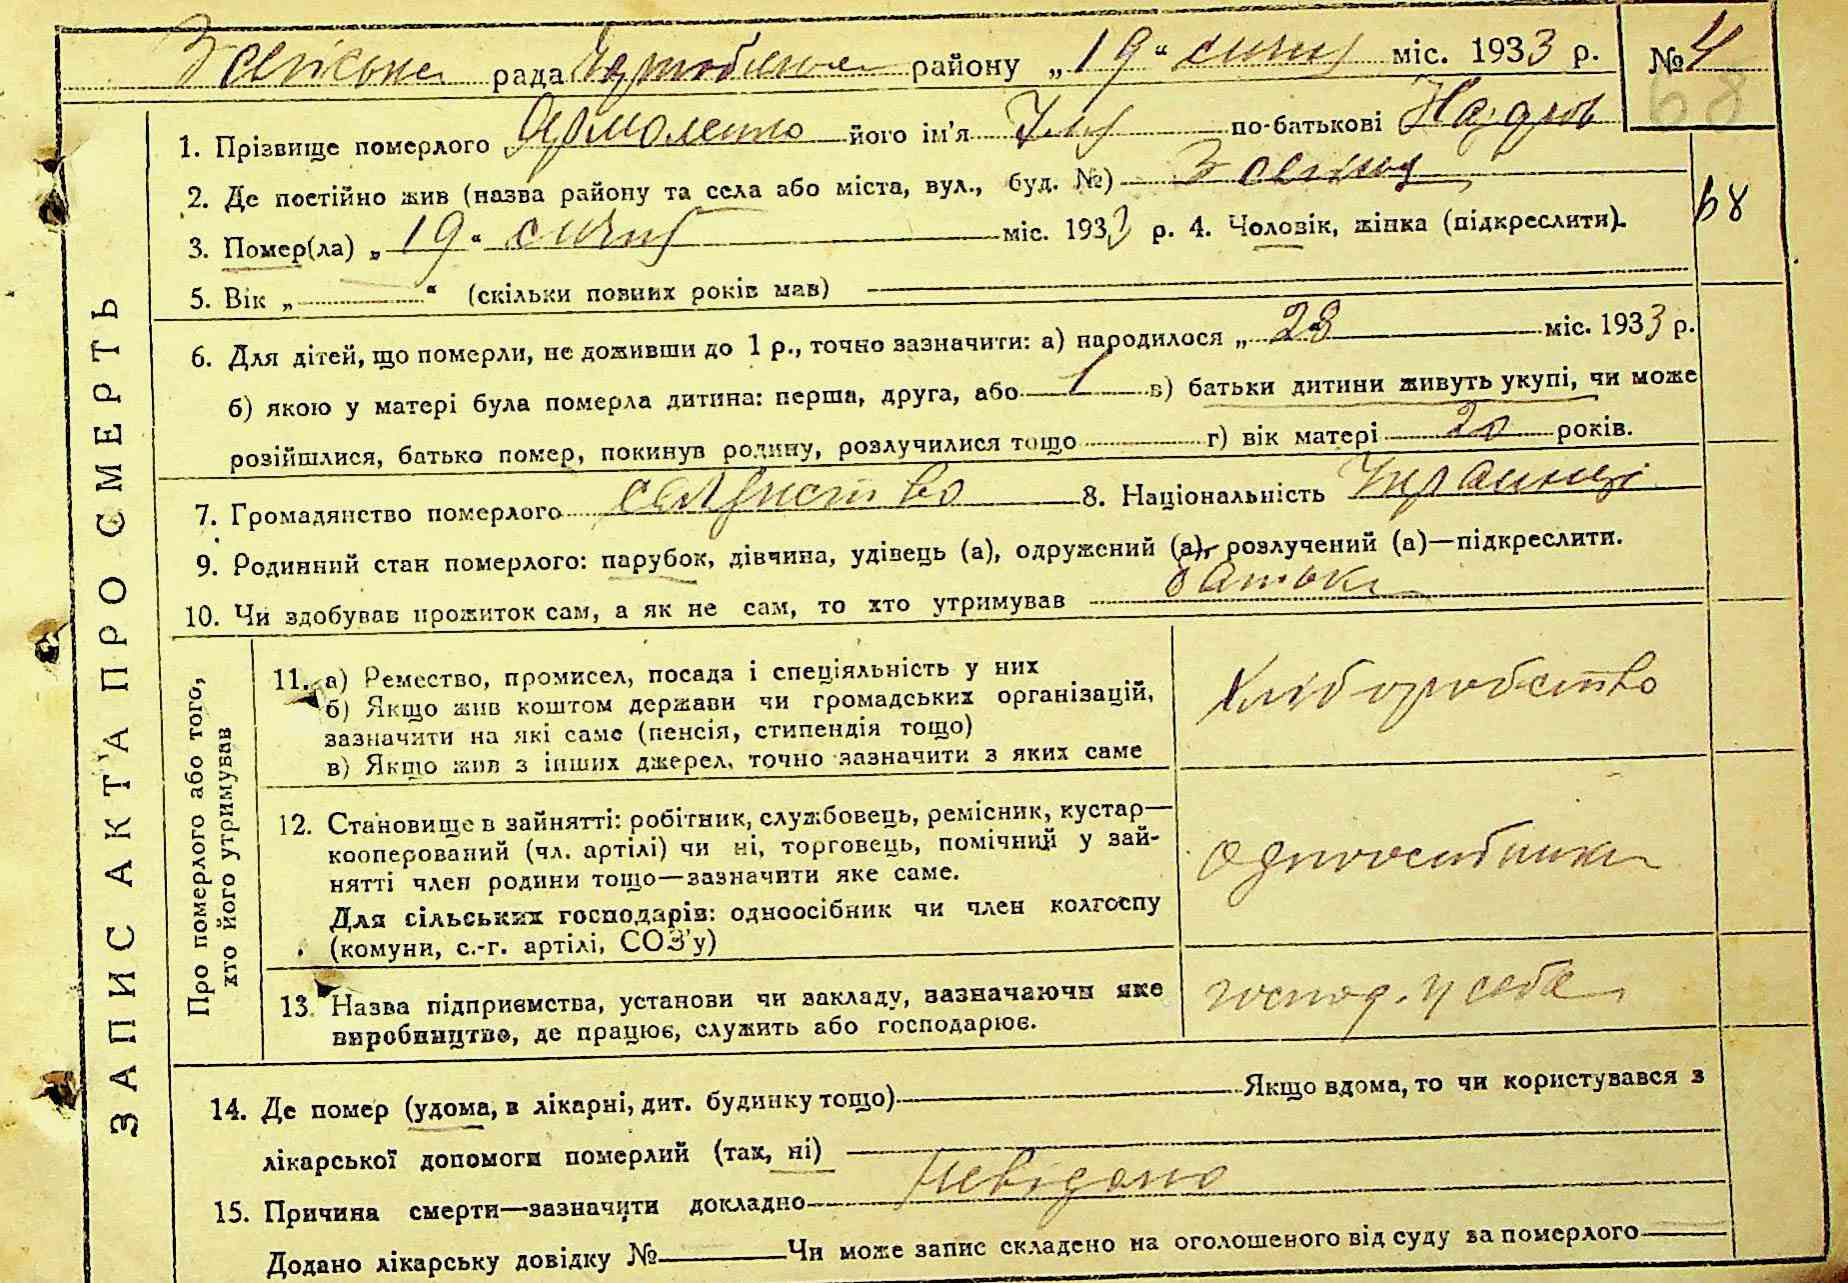 рада району „19“ січня міс. 1933 р. № 4
68
1. Прізвище померлого Ярмоленко його ім'я по-батькові
2. Де постійно жив (назва району та села або міста, вул., буд. №)
3. Помер(ла) „19“ січня міс. 1933 р. 4. Чоловік, жінка (підкреслити).
68
5. Вік „ “ (скільки повних років мав)
6. Для дітей, що померли, не доживши до 1 р., точно зазначити: а) народилося „ 28 міс. 1933 р.
б) якою у матері була померла дитина: перша, друга, або 1 в) батьки дитини живуть укупі, чи може
розійшлися, батько помер, покинув родину, розлучилися тощо г) вік матері 20 років.
7. Громадянство померлого селянство 8. Національність
9. Родинний стан померлого: парубок, дівчина, удівець (а), одружений (а), розлучений (а)—підкреслити.
10. Чи здобував прожиток сам, а як не сам, то хто утримував батьки
ЗАПИС АКТА ПРО СМЕРТЬ
Про померлого або того,
хто його утримував
11. а) Ремество, промисел, посада і спеціяльність у них
б) Якщо жив коштом держави чи громадських організацій,
зазначити на які саме (пенсія, стипендія тощо)
в) Якщо жив з інших джерел, точно зазначити з яких саме
Хліборобство
12. Становище в зайнятті: робітник, службовець, ремісник, кустар—
кооперований (чл. артілі) чи ні, торговець, помічний у зай-
нятті член родини тощо—зазначити яке саме.
Для сільських господарів: одноосібник чи член колгоспу
(комуни, с.-г. артілі, СОЗ'у)
одноосібники
13. Назва підприємства, установи чи закладу, зазначаючи яке
виробництво, де працює, служить або господарює.
господ. у себе
14. Де помер (удома, в лікарні, дит. будинку тощо) Якщо вдома, то чи користувався з
лікарської допомоги померлий (так, ні)
15. Причина смерти—зазначити докладно невідомо
Додано лікарську довідку № Чи може запис складено на оголошеного від суду за померлого